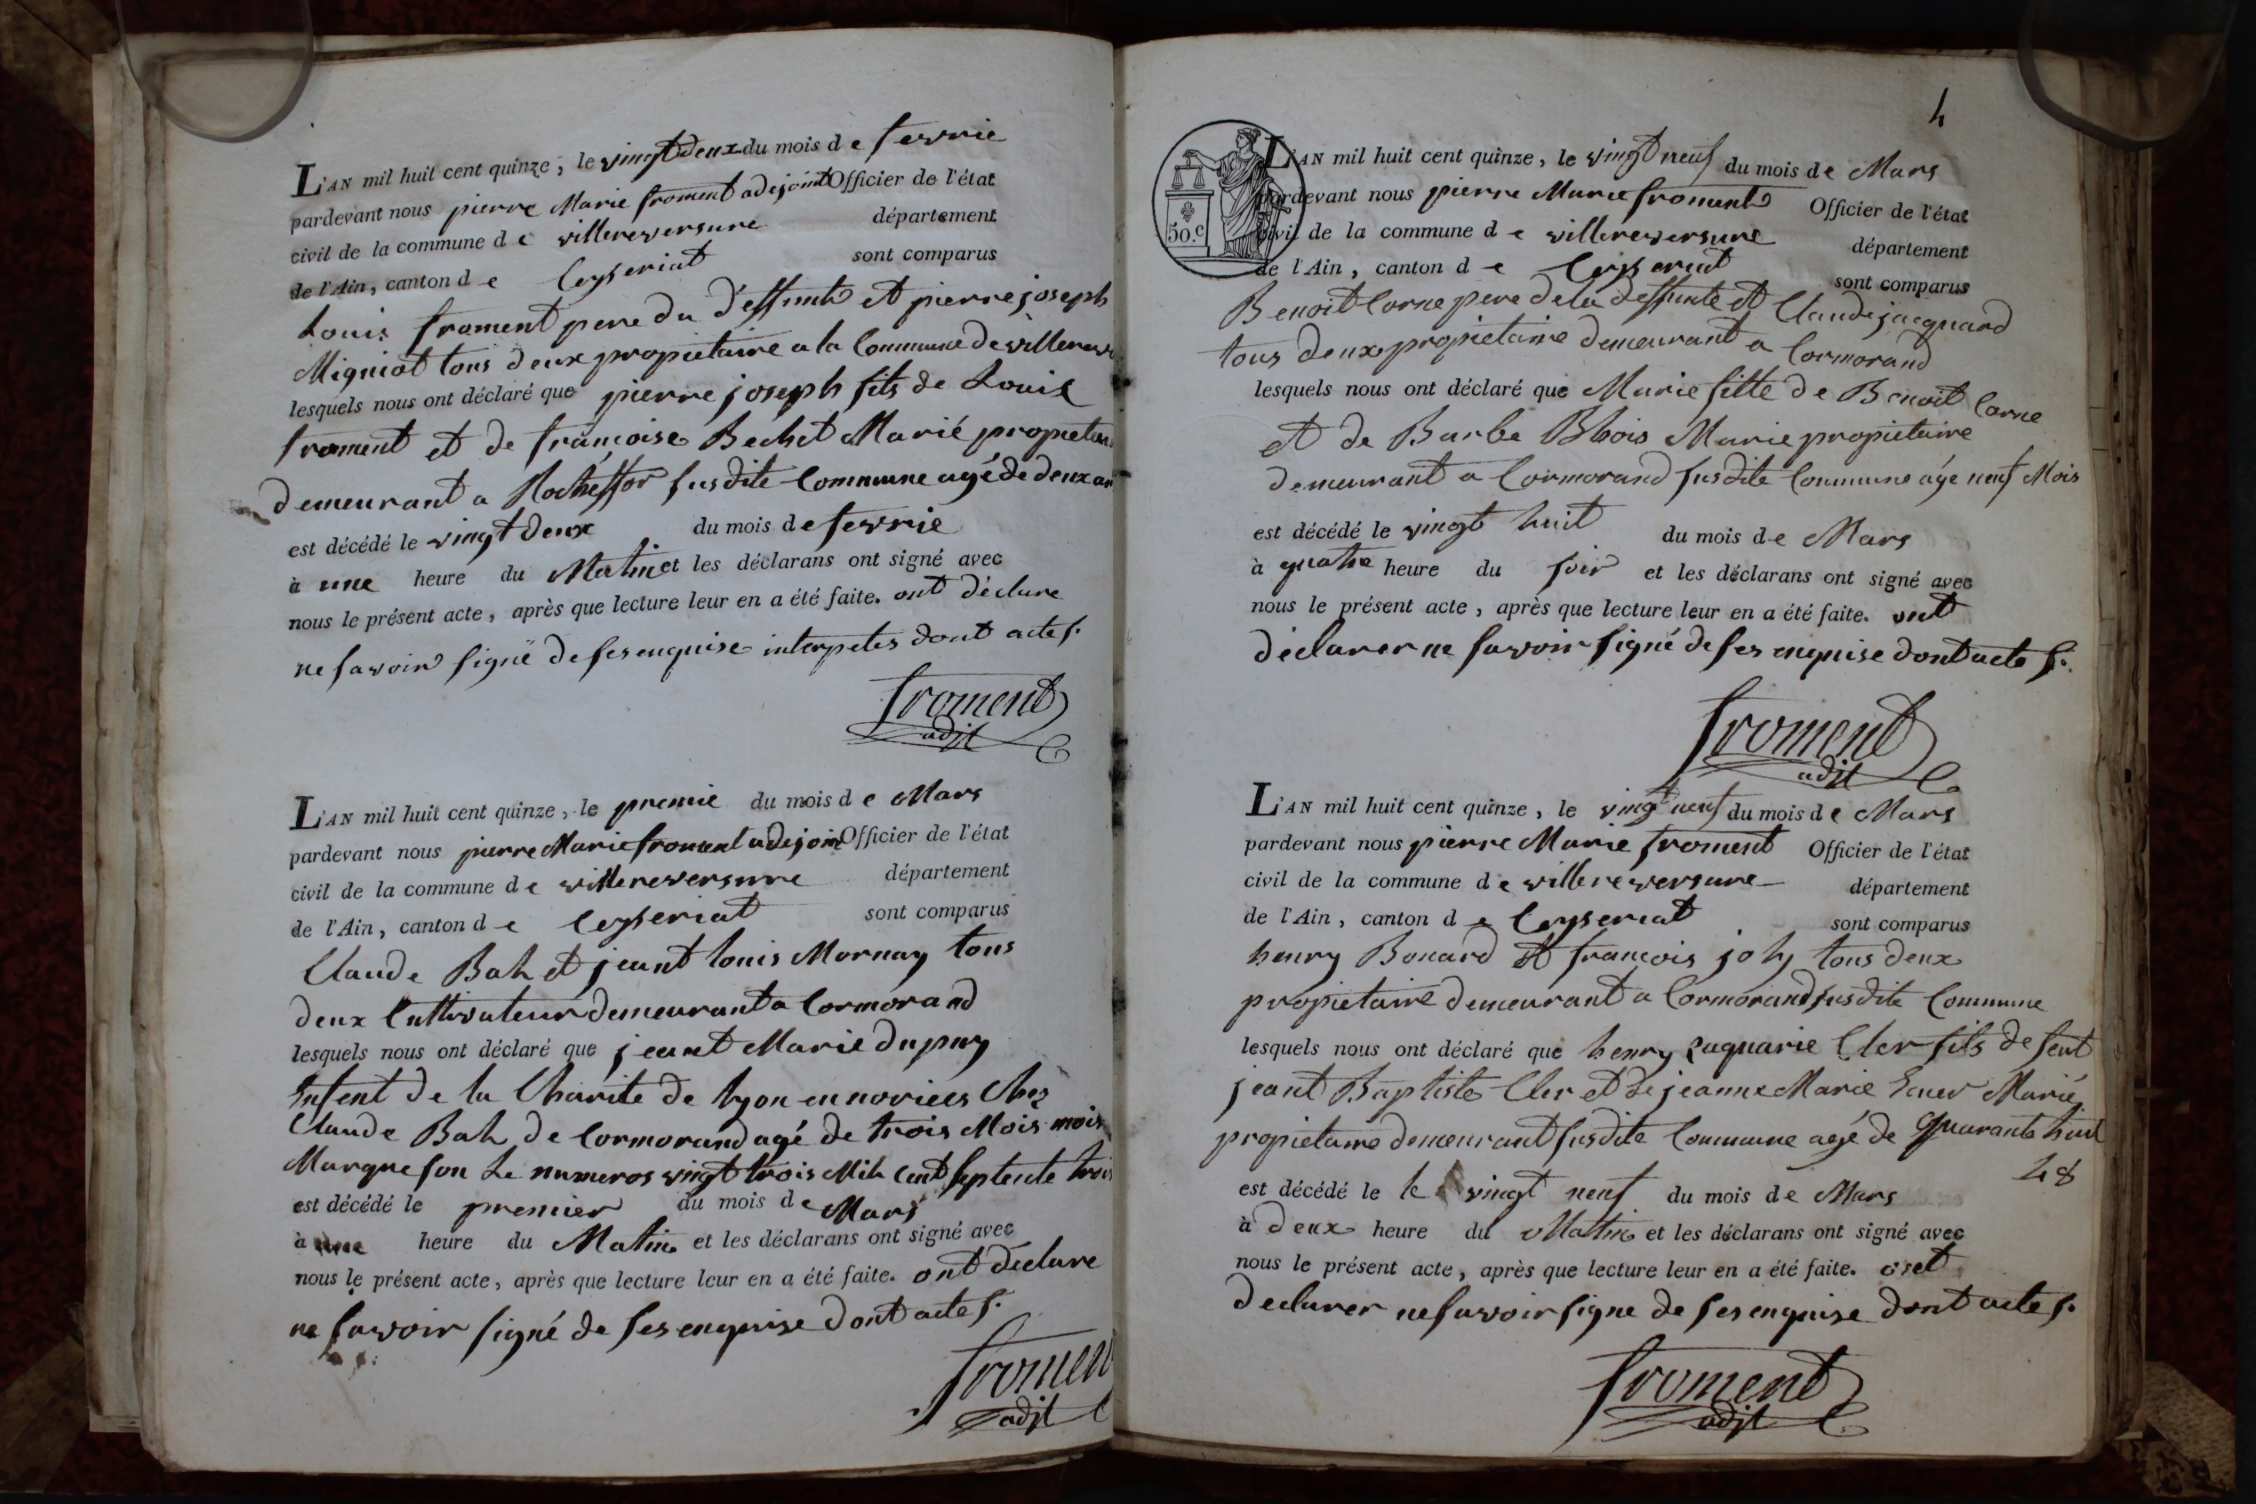 L'AN mil huit cent quinze, le vingt deux du mois de fevrie
pardevant nous pierre Marie froment adejoint Officier de l'état
civil de la commune de villereversure département
de l'Ain, canton de Ceyseriat sont comparus
Louis froment pere du deffunt et pierre joseph
Migniot tous deux propietaire a la Commune de villerev
lesquels nous ont déclaré que pierre joseph fils de Louis
froment et de françoise Bechet Marié propietai
demeurant a Rocheffor susdite Commune agé de deux an
est décédé le vingt deux du mois de fevrie
à une heure du Matin et les déclarans ont signé avec
nous le présent acte, après que lecture leur en a été faite. ont déclare
ne savoir signé de ses enquise interpetes dont acte f.
froment
adjt
L'AN mil huit cent quinze, le premie du mois de Mars
pardevant nous pierre Marie froment adejoin Officier de l'état
civil de la commune de villereversure département
de l'Ain, canton de Ceyseriat sont comparus
Claude Bah et jeant louis Mornay tous
deux Cultivateur demeurant a Cormorand
lesquels nous ont déclaré que jeant Marie dupuy
Enfent de la Charite de lyon en noriees Chez
Claude Bah de Cormorand agé de trois Mois mois
Marque son Le numeros vingt trois Mile cent septente trois
est décédé le premier du mois de Mars
à une heure du Matin et les déclarans ont signé avec
nous le présent acte, après que lecture leur en a été faite. ont declare
ne savoir signé de ses enquise dont acte f.
froment
adjt
4
50.c
L'AN mil huit cent quinze, le vingt neuf du mois de Mars
pardevant nous pierre Marie froment Officier de l'état
civil de la commune de villereversure département
de l'Ain, canton de Ceyseriat sont comparus
Benoit Corne pere de la deffunte et Claude jacquard
tous deux propietaire demeurant a Cormorand
lesquels nous ont déclaré que Marie fille de Benoit Corne
et de Barbe Marie propietaire
demeurant a Cormorand susdite Commune agé neuf Mois
est décédé le vingt huit du mois de Mars
à quatre heure du soir et les déclarans ont signé avec
nous le présent acte, après que lecture leur en a été faite. ont
déclarer ne savoir signé de ses enquise dont acte f.
froment
adjt
L'AN mil huit cent quinze, le vingt neuf du mois de Mars
pardevant nous pierre Marie froment Officier de l'état
civil de la commune de villereversure département
de l'Ain, canton de Ceyseriat sont comparus
henry Bouard et francois joly tous deux
propietaire demeurant a Cormorand susdite Commune
lesquels nous ont déclaré que henry Cler fils de feut
jeant Baptiste Cler et de jeanne Marie Marié
propietaire demeurant susdite Commune agé de quarante huit
48
est décédé le le vingt neuf du mois de Mars
à deux heure du Matin et les déclarans ont signé avec
nous le présent acte, après que lecture leur en a été faite. ont
declarer ne savoir signe de ses enquise dont acte f.
froment
adjt